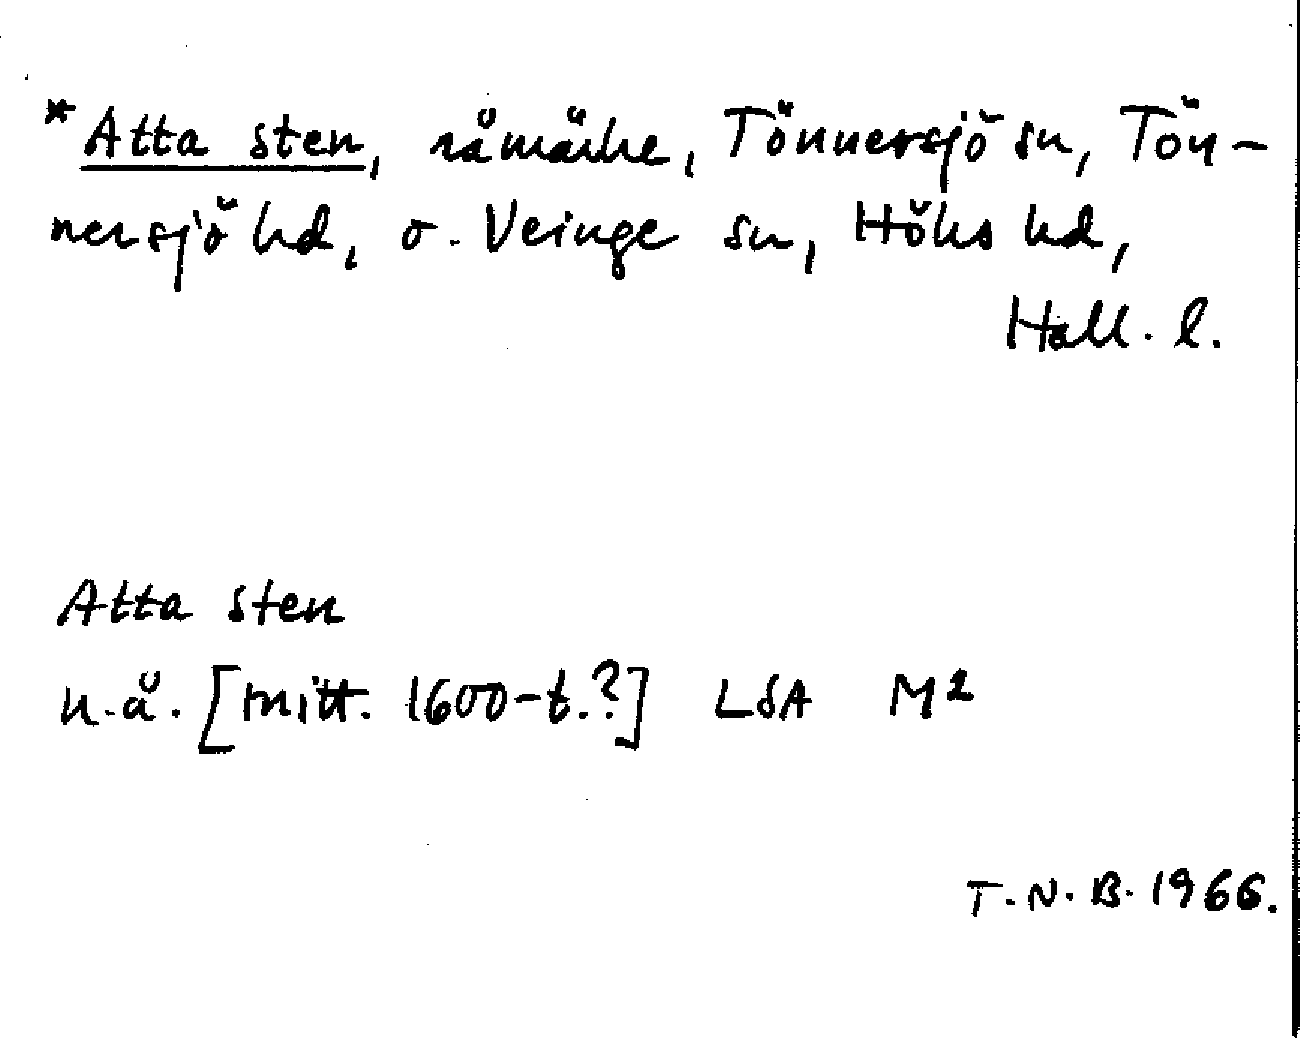 *Atta sten, råmärke, Tönnersjö sn, Tön-
nersjö hd, o. Veinge sn, Höks hd,
Hall. l.
Atta sten
u.å. [mitt. 1600-t.?] LSA M²
T.N.B. 1966.